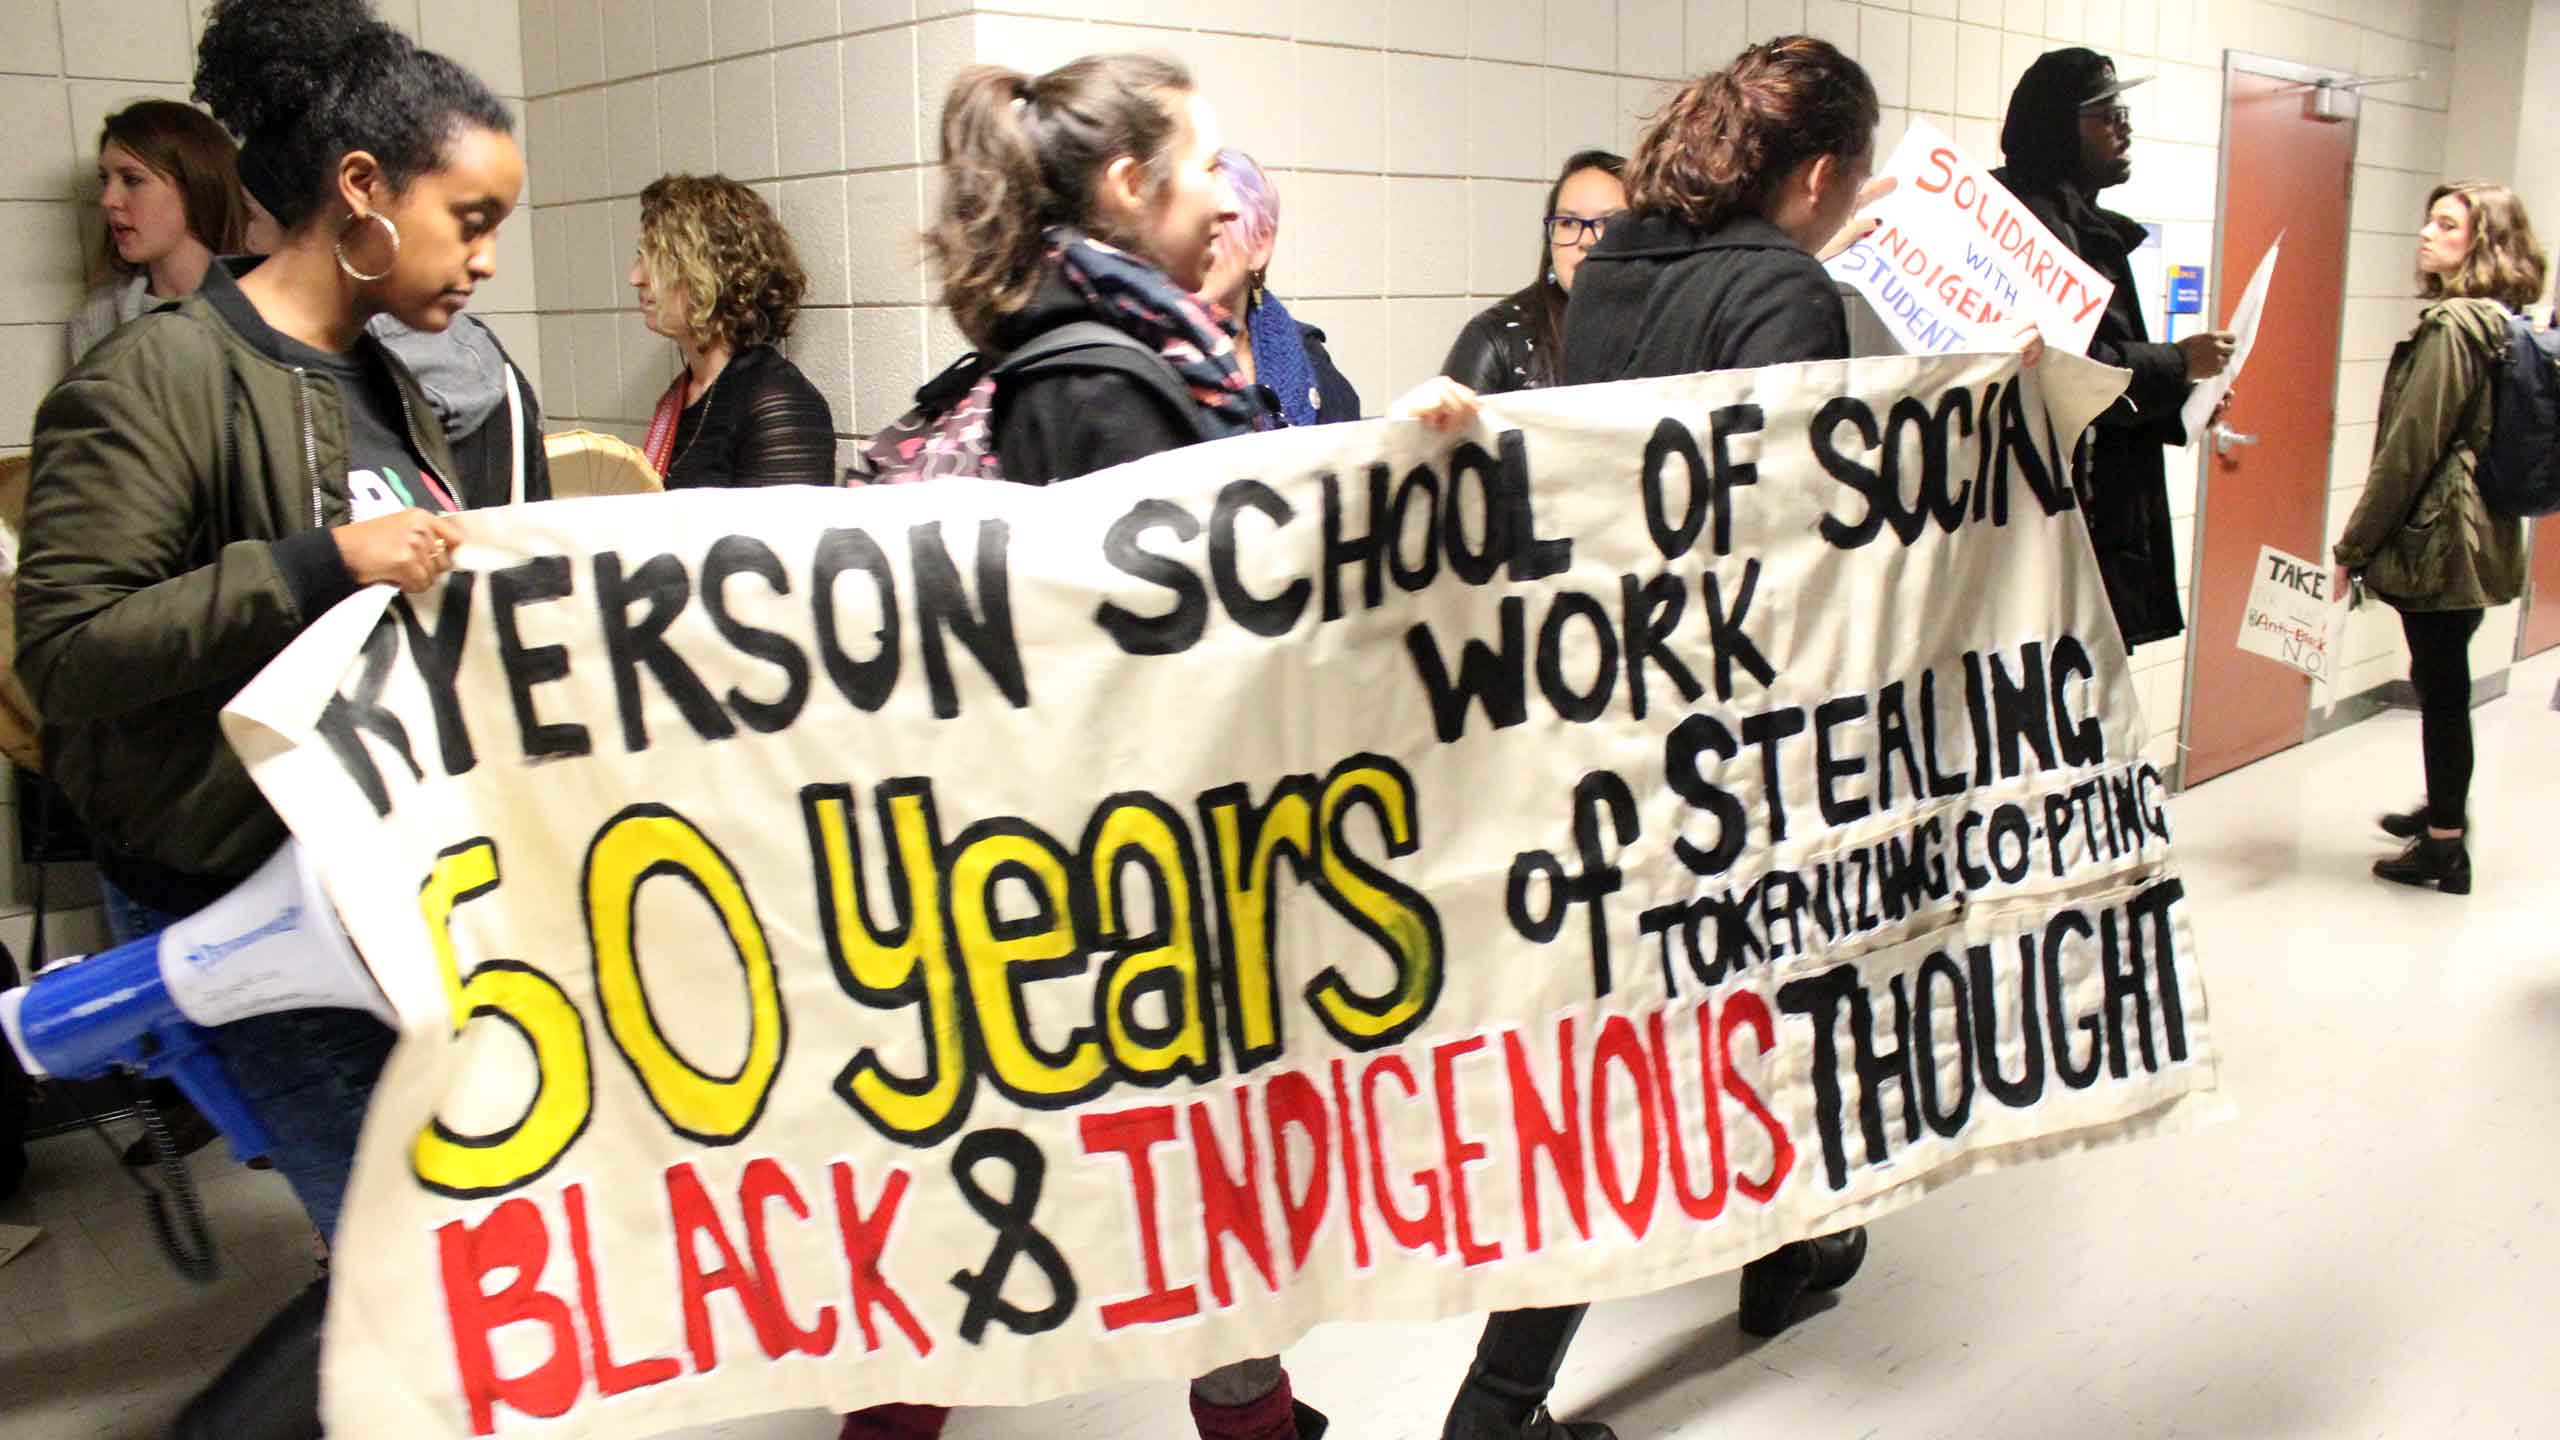 RYERSON SCHOOL OF SOCIAL
WORK
50 years of STEALING
TOKENIZING, CO-PTING
BLACK & INDIGENOUS THOUGHT
SOLIDARITY
WITH
INDIGEN
STUDENT
TAKE
Anti-Black
NO